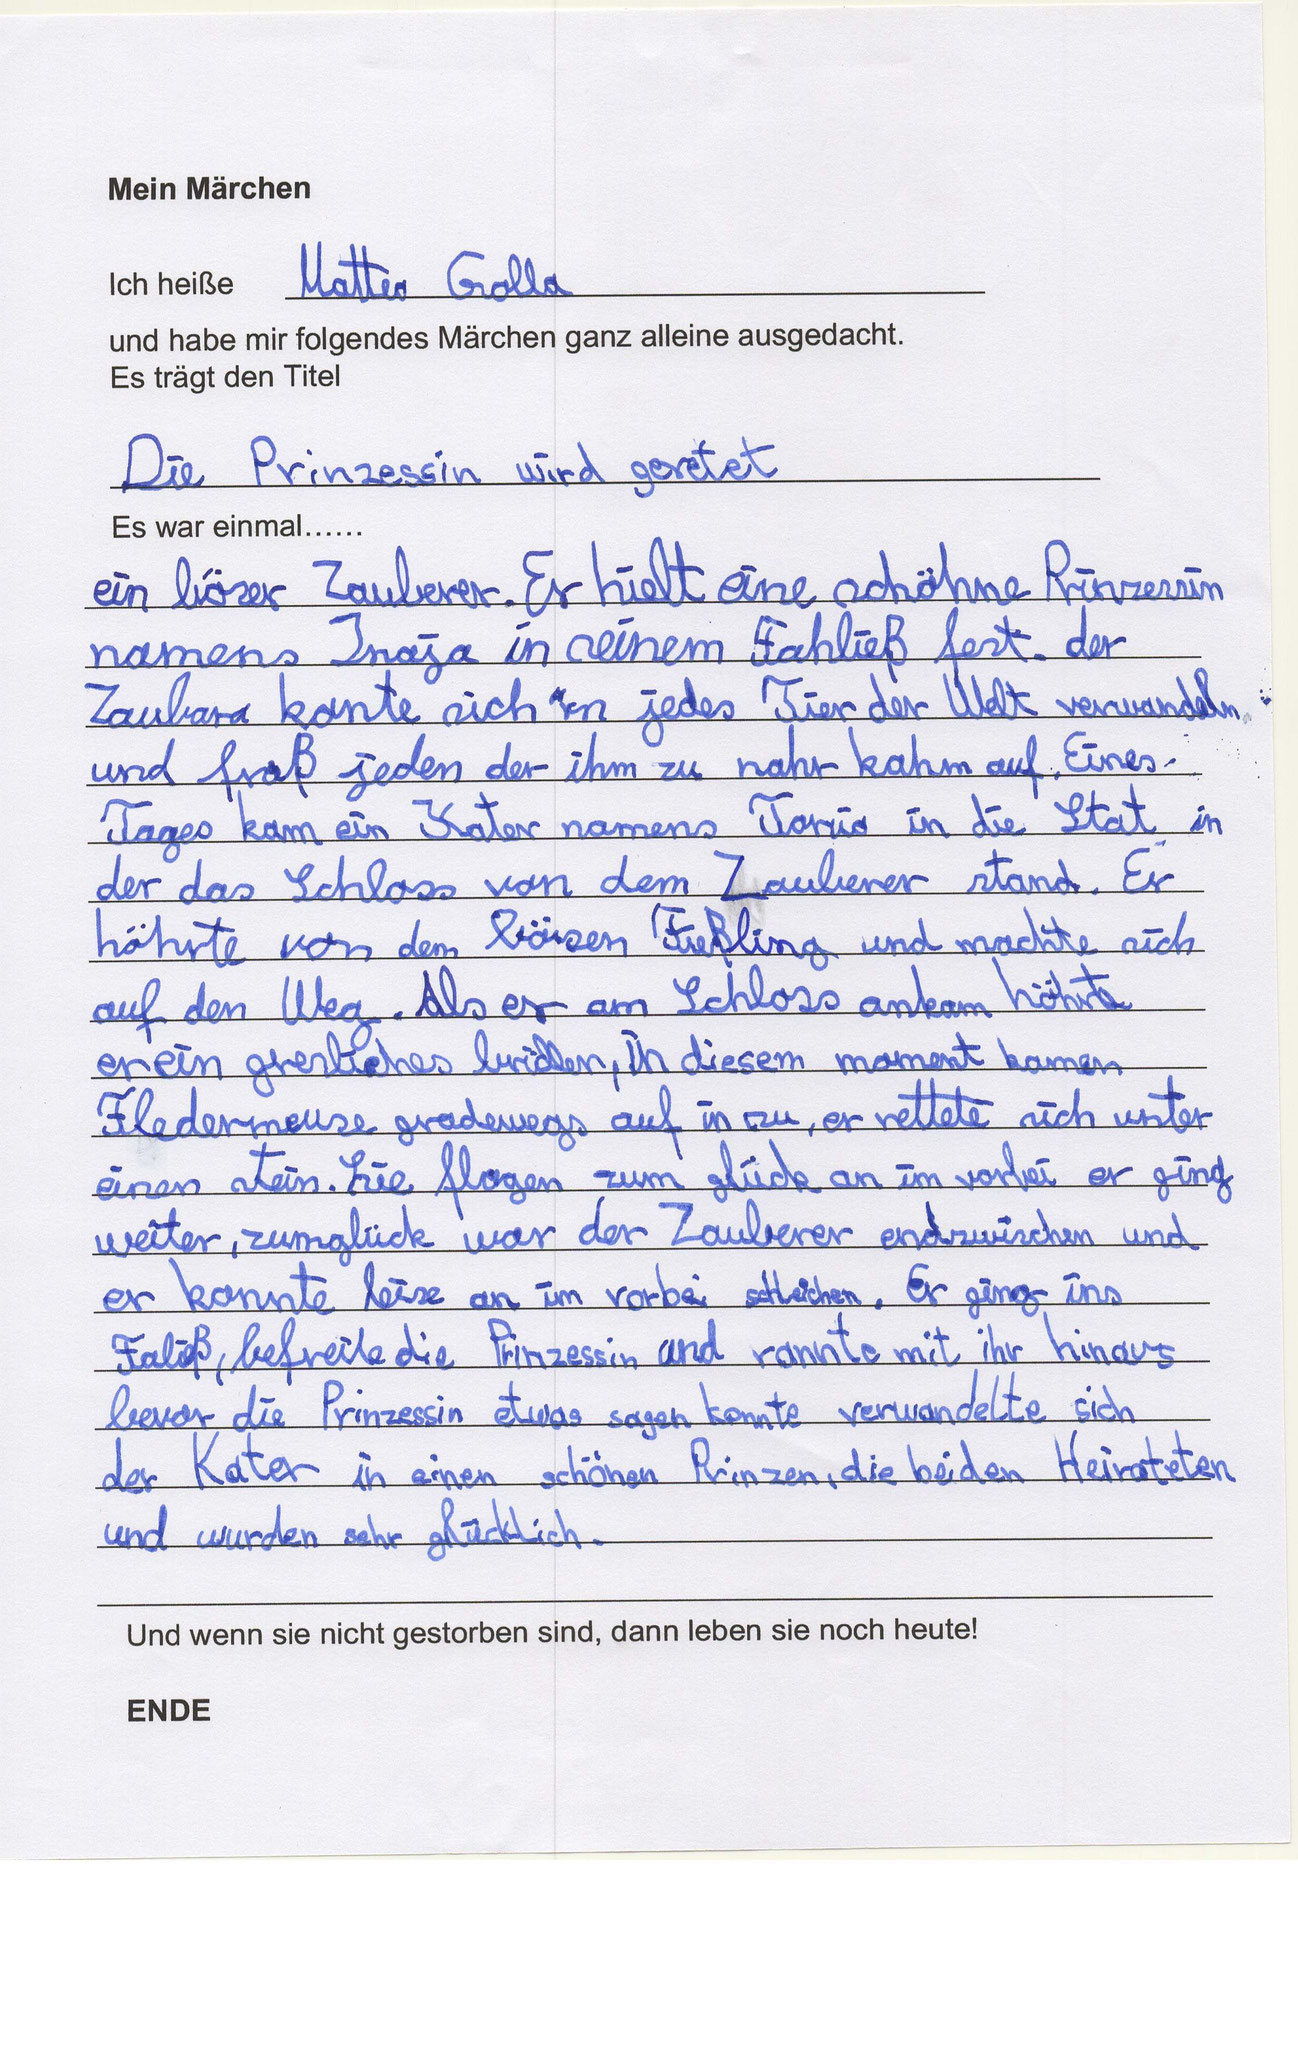 Mein Märchen
Ich heiße Matteo Golla
und habe mir folgendes Märchen ganz alleine ausgedacht.
Es trägt den Titel
Die Prinzessin wird geretet
Es war einmal......
ein böser Zauberer. Er hielt eine schöhne Prinzessin
namens Inaja in seinem Fahließ fest. der
Zaubara konte sich in jedes Tier der Welt verwandeln
und fraß jeden der ihm zu nahr kahm auf. Eines
Tages kam ein Kater namens in die Stat in
der das Schloss von dem Zauberer stand. Er
höhrte von dem bösen Fießling und machte sich
auf den Weg. Als er am Schloss ankam höhrte
er ein gresliches brüllen, in diesem moment kamen
Fledermeuse gradewegs auf in zu, er rettete sich unter
einen stein. Sie flogen zum glück an im vorbei er ging
weiter, zumglück war der Zauberer endzwischen und
er konnte leise an im vorbei schleichen. Er ging ins
Faliß, befreite die Prinzessin und rannte mit ihr hinaus
bevor die Prinzessin etwas sagen konnte verwandelte sich
der Kater in einen schönen Prinzen, die beiden Heirateten
und wurden sehr glücklich.
Und wenn sie nicht gestorben sind, dann leben sie noch heute!
ENDE